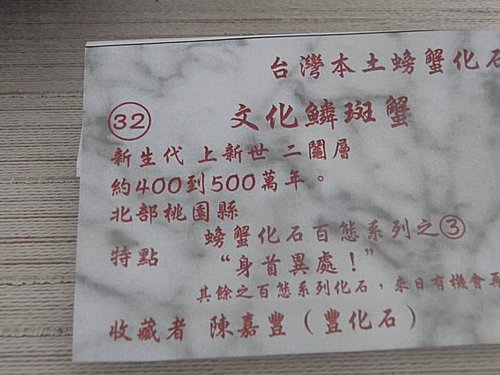 台灣本土螃蟹化石
32 文化鱗斑蟹
新生代 上新世 二鬮層
約400到500萬年。
北部桃園縣
特點 螃蟹化石百態系列之③
“身首異處！”
其餘之百態系列化石，來日有機會再
收藏者 陳嘉豐（豐化石）